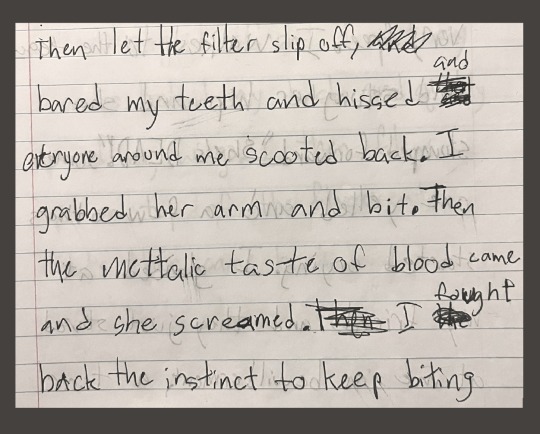 Then let the filter slip off,
and
bared my teeth and hissed
everyone around me scooted back. I
grabbed her arm and bit. Then
the mettalic taste of blood came
fought
and she screamed. Then I
back the instinct to keep biting